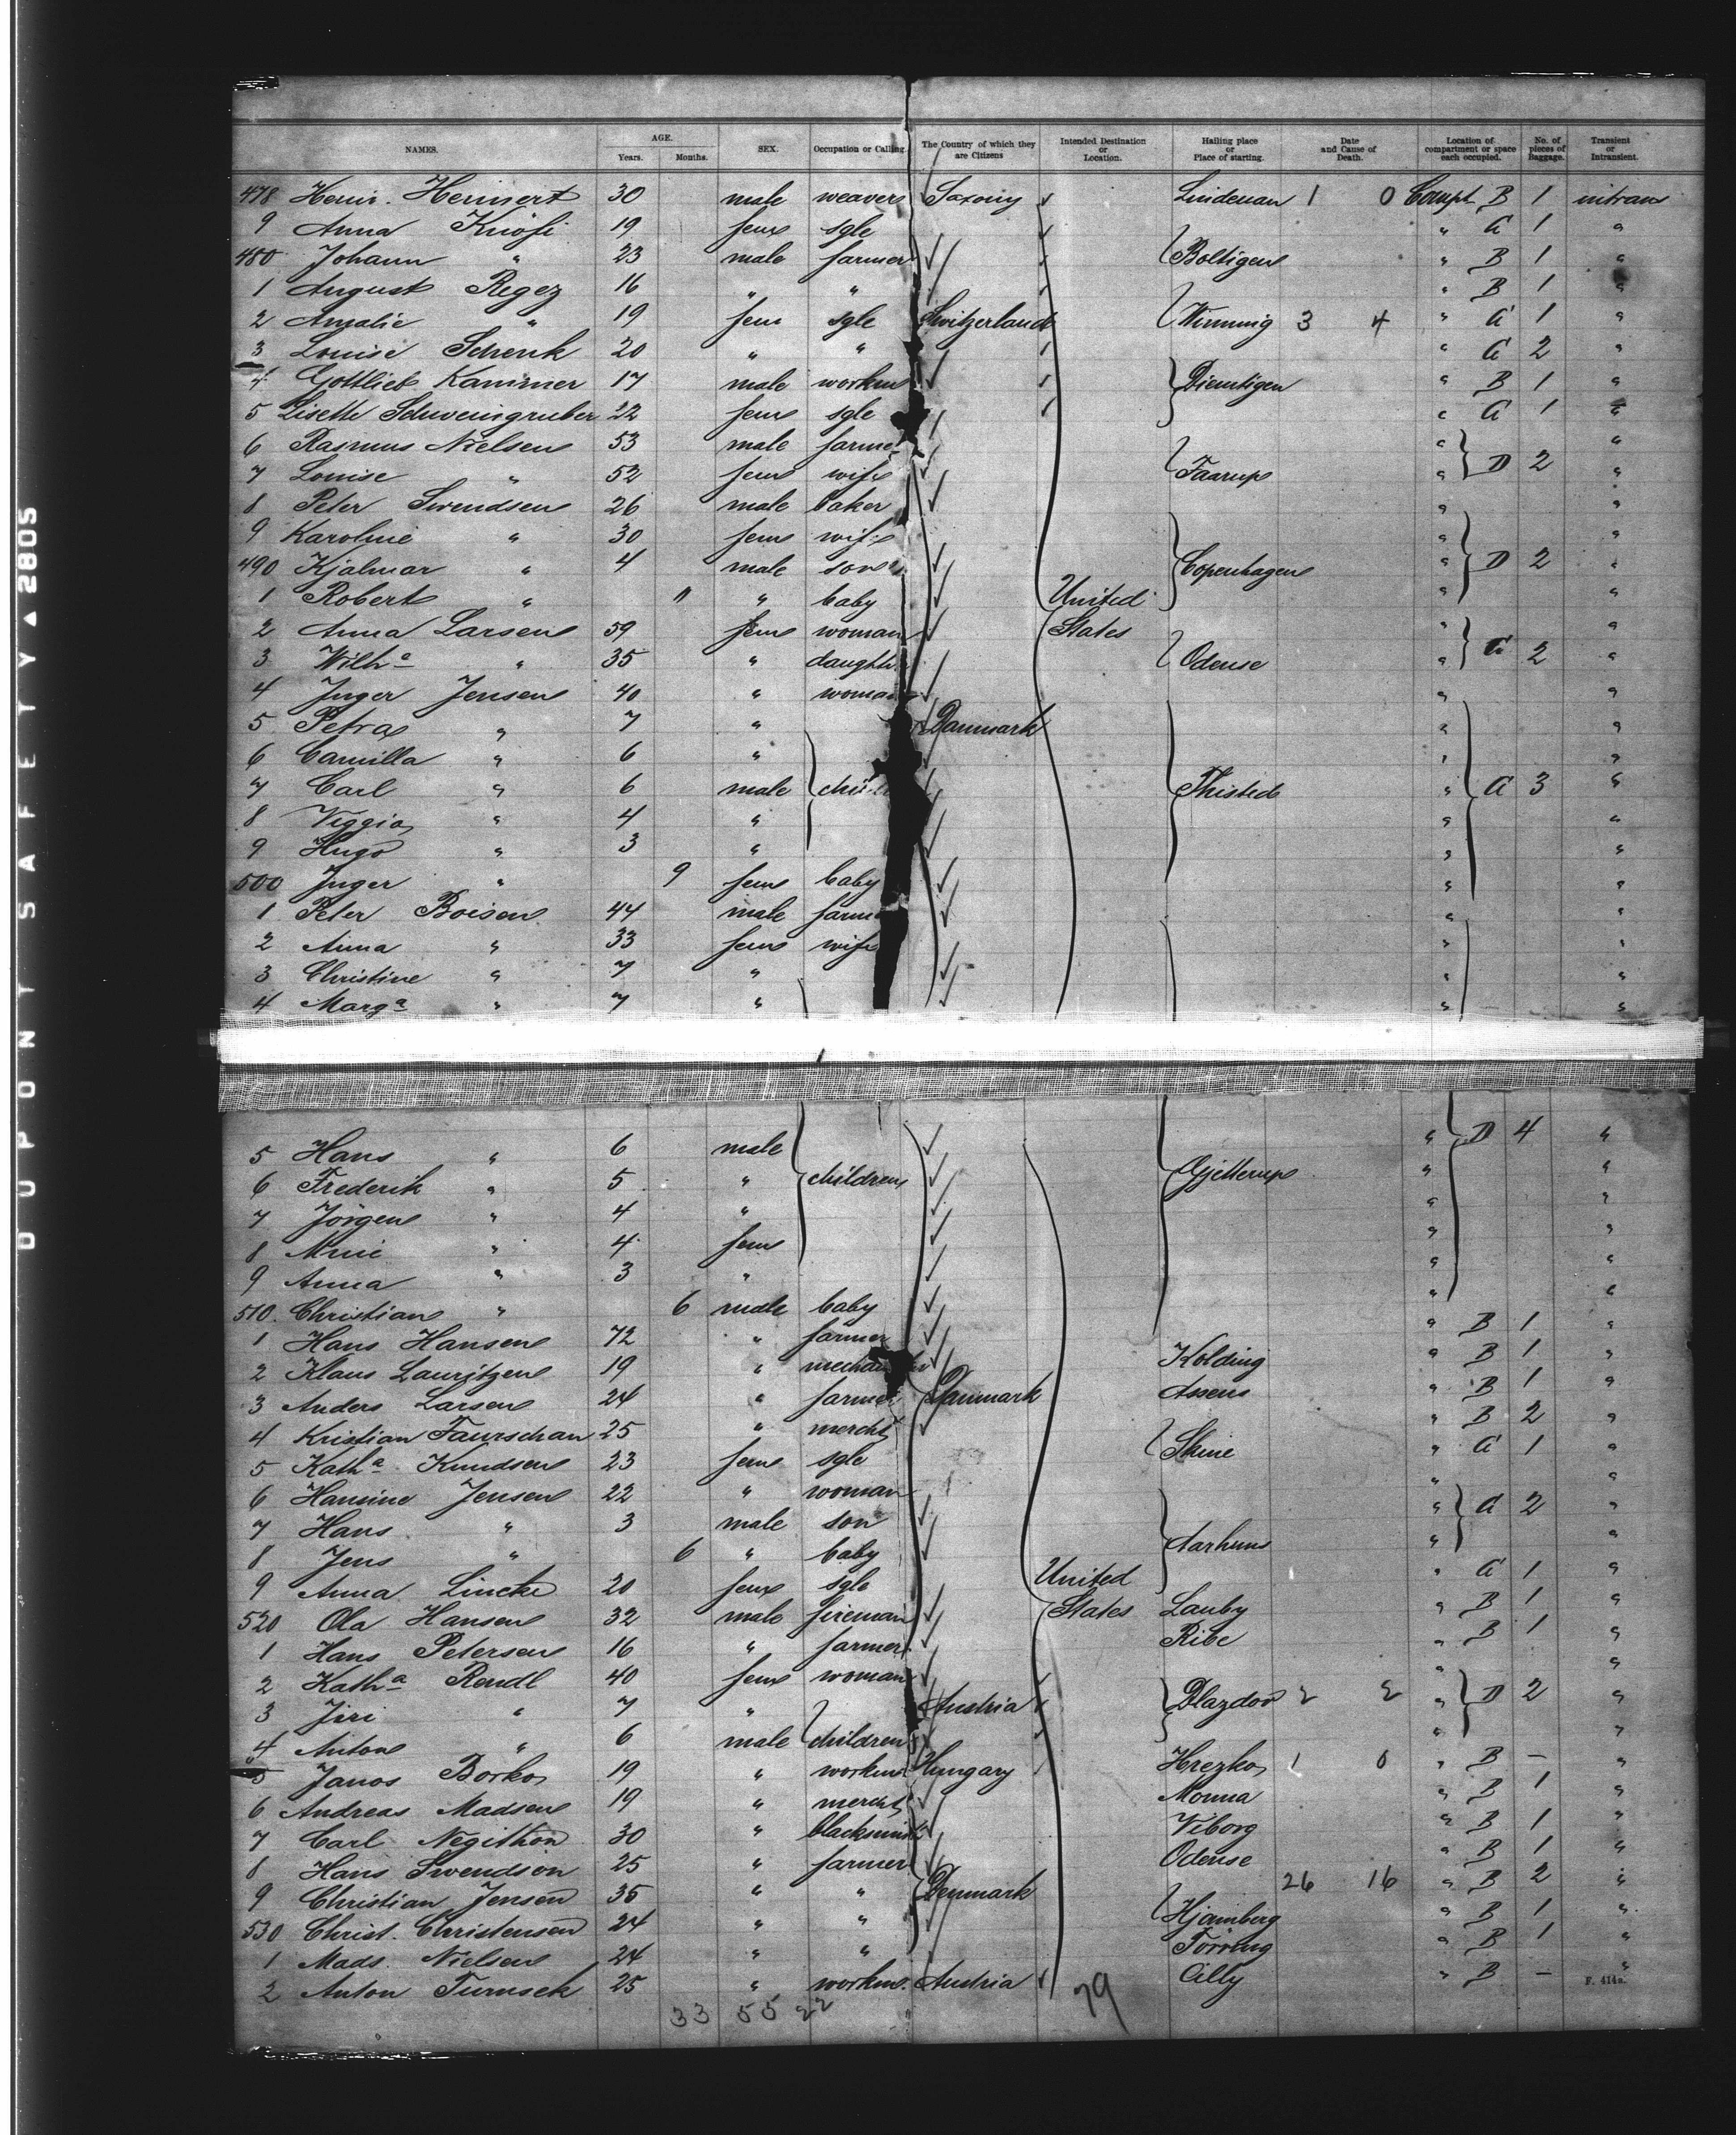 DUPONT SAFETY ▲ 2805
NAMES. AGE. Years. Months. SEX. Occupation or Calling. The Country of which they are Citizens Intended Destination or Location. Hailing place or Place of starting. Date and Cause of Death. Location of compartment or space each occupied. No. of pieces of Baggage. Transient or Intransient.
478 Heinr. Heinnert 30 male weaver Saxony Lindenau 1 0 Compt B 1 intrans
9 Anna Knöfi 19 fem sgle " G 1 "
480 Johann " 23 male farmer Boltigen " B 1 "
1 August Regez 16 " " " B 1 "
2 Amalie " 19 fem sgle Switzerland Wimmig 3 4 " G 1 "
3 Louise Schenk 20 " " " G 2 "
4 Gottlieb Kammer 17 male workm Diemtigen " B 1 "
5 Liseth Schweingruber 22 fem sgle " G 1 "
6 Rasmus Nielsen 53 male farmer " "
7 Louise " 52 fem wife Faarup " D 2 "
8 Peter Swendsen 26 male baker " "
9 Karoline " 30 fem wife " "
490 Hjalmar " 4 male son Copenhagen " D 2 "
1 Robert " 11 " baby United " "
2 Anna Larsen 59 fem woman States " "
3 Wilha " 35 " daughter Odense " G 2 "
4 Inger Jensen 40 " woman " "
5 Petra " 7 " Danmark " "
6 Camilla " 6 " " "
7 Carl " 6 male child Thisted " G 3 "
8 Viggio " 4 " " "
9 Hugo " 3 " " "
500 Inger " 9 fem baby " "
1 Peter Boisen 44 male farmer " "
2 Anna " 33 fem wife " "
3 Christine " 7 " " "
4 Marga " 7 " " "
5 Hans " 6 male " D 4 "
6 Frederik " 5 " children Gjellerup " "
7 Jörgen " 4 " " "
8 Mine " 4 fem " "
9 Anna " 3 " " "
510 Christian " 6 male baby " "
1 Hans Hansen 72 " farmer " B 1 "
2 Klaus Lauritzen 19 " mechanic Kolding " B 1 "
3 Anders Larsen 24 " farmer Danmark Assens " B 1 "
4 Kristian Faurschau 25 " mercht " B 2 "
5 Katha Knudsen 23 fem sgle Skine " G 1 "
6 Hansine Jensen 22 " woman " "
7 Hans " 3 male son " G 2 "
8 Jens " 6 " baby Aarhuus " "
9 Anna Lincke 20 fem sgle United " G 1 "
520 Ola Hansen 32 male fireman States Lauby " B 1 "
1 Hans Petersen 16 " farmer Ribe " B 1 "
2 Katha Rendl 40 fem woman " "
3 Jiri " 7 " Austria Blazdov 2 2 " D 2 "
4 Anton " 6 male children " "
5 Janos Borko 19 " workm Hungary Hrezko 1 0 " B – "
6 Andreas Madsen 19 " mercht Monna " B 1 "
7 Carl Negithon 30 " blacksmith Viborg " B 1 "
8 Hans Swendson 25 " farmer Odense " B 1 "
9 Christian Jensen 35 " " Denmark 26 16 " B 2 "
530 Christ. Christensen 24 " " Hjamberg " B 1 "
1 Mads. Nielsen 24 " " Törring " B 1 "
2 Anton Turnsek 25 " workm. Austria Cilly " B – "
33 55 22 79 F. 414a.